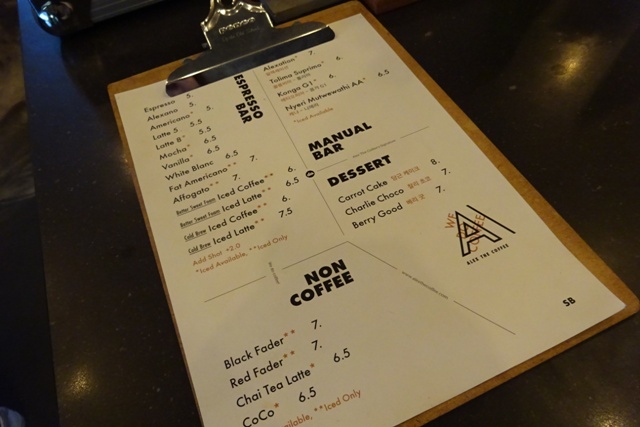 ESPRESSO
BAR
Espresso 5.
Alexano 5.
Americano* 5.
Latte 5 5.5
Latte 8* 5.5
Mocha* 6.5
Vanilla* 6.5
White Blanc 6.5
Fat Americano** 7.
Affogato** 7.
Better Sweet Foam Iced Coffee** 6.
Better Sweet Foam Iced Latte** 6.5
Cold Brew Iced Coffee** 6.
Cold Brew Iced Latte** 7.5
Add Shot +2.0
*Iced Available, **Iced Only
Alexation* 7.
Tolima Suprimo* 6.
Konga G1* 6.
Nyeri Mutwewathi AA* 6.5
*Iced Available
MANUAL
BAR
DESSERT
Carrot Cake 당근 케이크 8.
Charlie Choco 찰리 초코 7.
Berry Good 베리 굿 7.
WE
COFFEE
ALEX THE COFFEE
NON
COFFEE
Black Fader** 7.
Red Fader** 7.
Chai Tea Latte* 6.5
CoCo* 6.5
Available, **Iced Only
SB